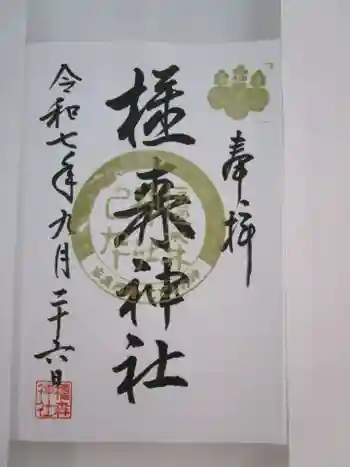 奉拝
橿森神社
令和七年九月二十六日
橿森神社